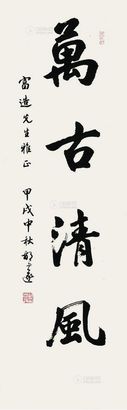 萬古清風
富進先生雅正
甲戌中秋